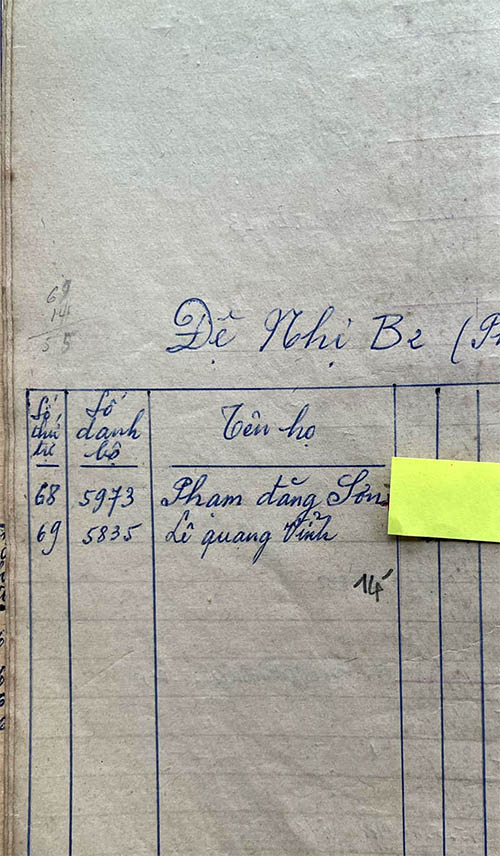 69
14
55
Đệ Nhị B2 (Ph
Số thứ tự
Số danh bộ
Tên họ
68 5973 Phạm đăng Sơn
69 5835 Lê quang Vĩnh
14